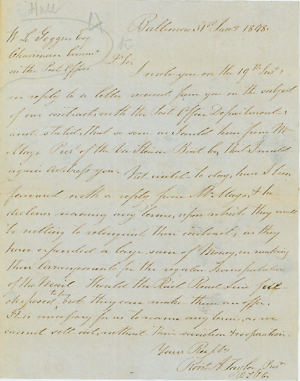 Hall
Baltimore 31st Jany 1848.
W. L. Goggin Esq
Chairman Comm
on the Post Office
Dr Sir
I wrote you on the 19th Inst
in reply to a letter received from you on the subject
of our contract with the Post Office Department
and stated that so soon as I could hear from
Mayo Prest of the Steam Boat Co, that I would
again address you. Not until to day, have I been
favored with a reply from Mr Mayo, & he
declines naming any terms, upon which they would
be willing to relinquish their contract, as they
have expended a large sum of Money, in making
their arrangements for the regular transportation
of the Mail. Should the Rail Road Line feel
disposed to buy, they can make them an offer.
It is unnecessary for us to name any terms, as we
cannot sell out, without their cooperation.
Your Respy
Robt A. Taylor Prest